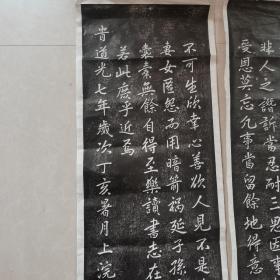 非人之譖訴當忍耐三思因
受恩莫忘凡事當留餘地得意
不可生欣幸心善欲人見不是
妻女匿怨而用暗箭禍延子孫
囊橐無餘自得至樂讀書志在
若此庶乎近焉
峕道光七年歲次丁亥暑月上浣